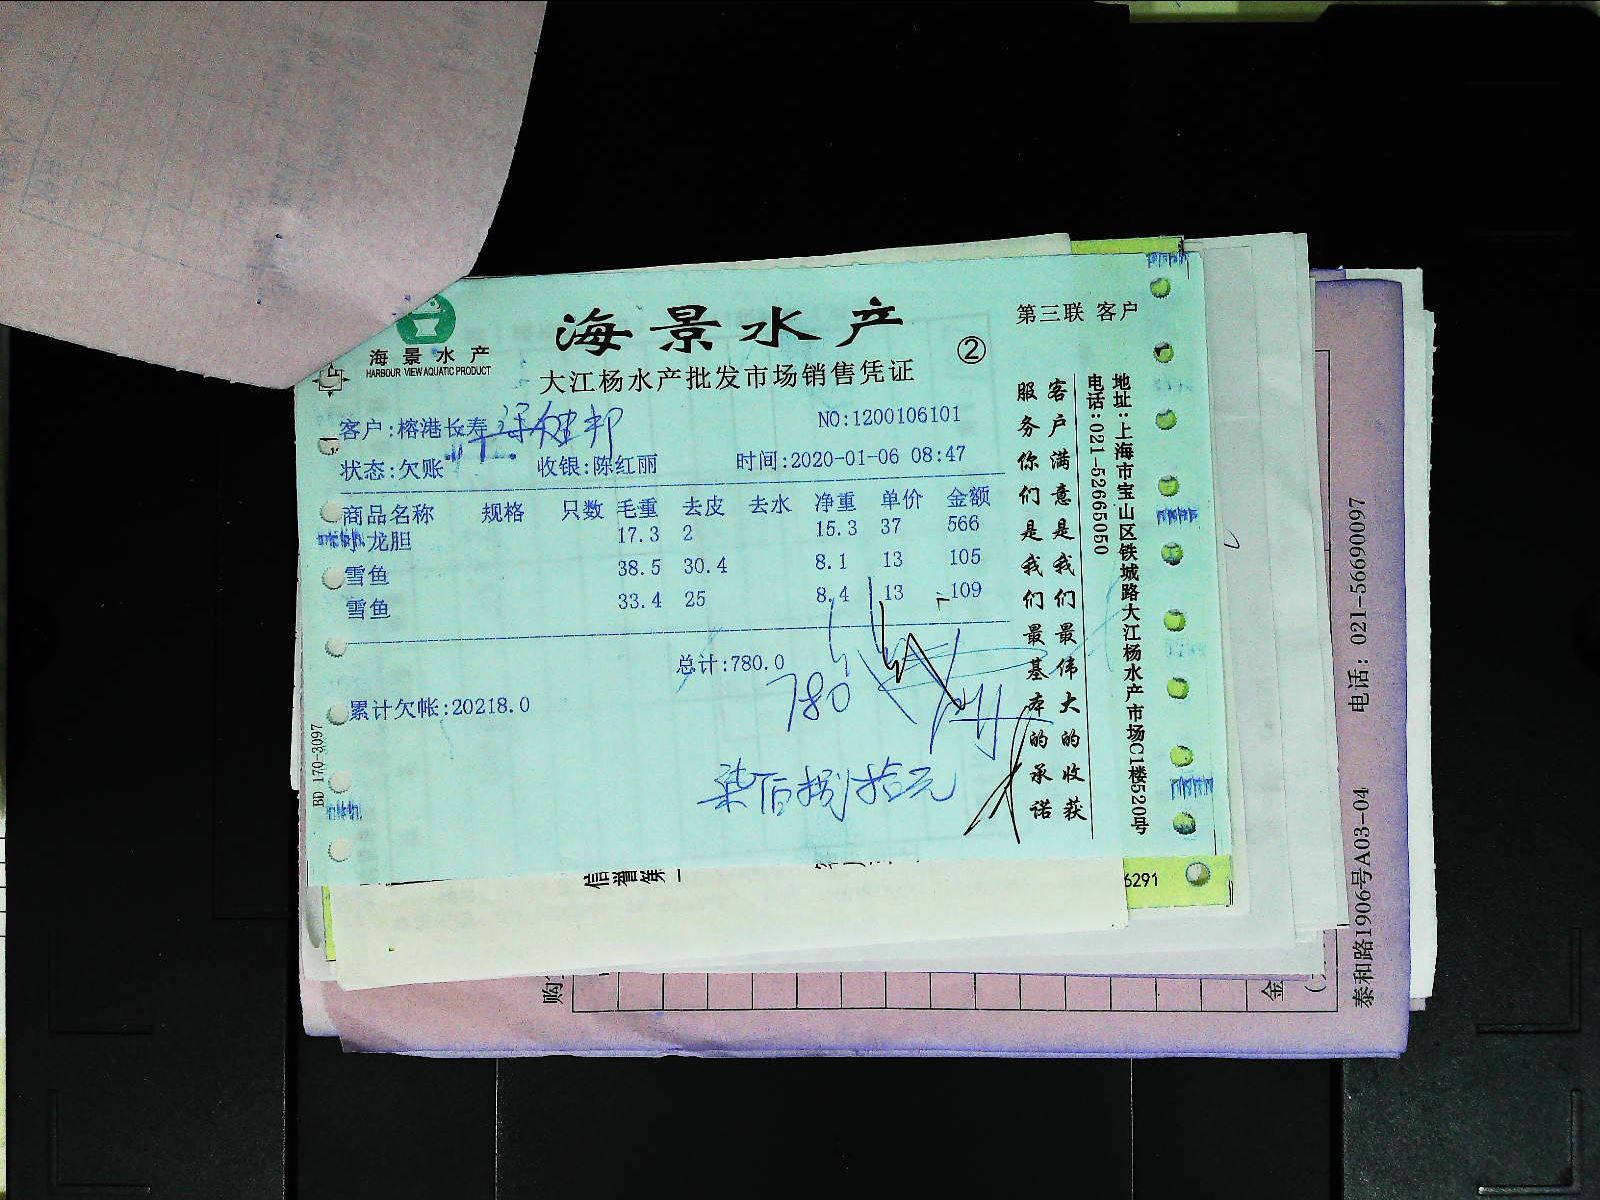 海景水产
HARBOUR VIEW AQUATIC PRODUCT
海景水产
大江杨水产批发市场销售凭证
②
第三联 客户
客户:榕港长寿 梁健邦
NO:1200106101
状态:欠账 收银:陈红丽 时间:2020-01-06 08:47
商品名称 规格 只数 毛重 去皮 去水 净重 单价 金额
小龙胆 17.3 2 15.3 37 566
雪鱼 38.5 30.4 8.1 13 105
雪鱼 33.4 25 8.4 13 109
总计:780.0
780
累计欠帐:20218.0
柒佰捌拾元
客户满意是我们最伟大的收获
服务你们是我们最基本的承诺
地址:上海市宝山区铁城路大江杨水产市场C1楼520号
电话:021-52665050
BD 170-3097
信誉第一
6291
购
金
泰和路1906号A03-04 电话: 021-56690097